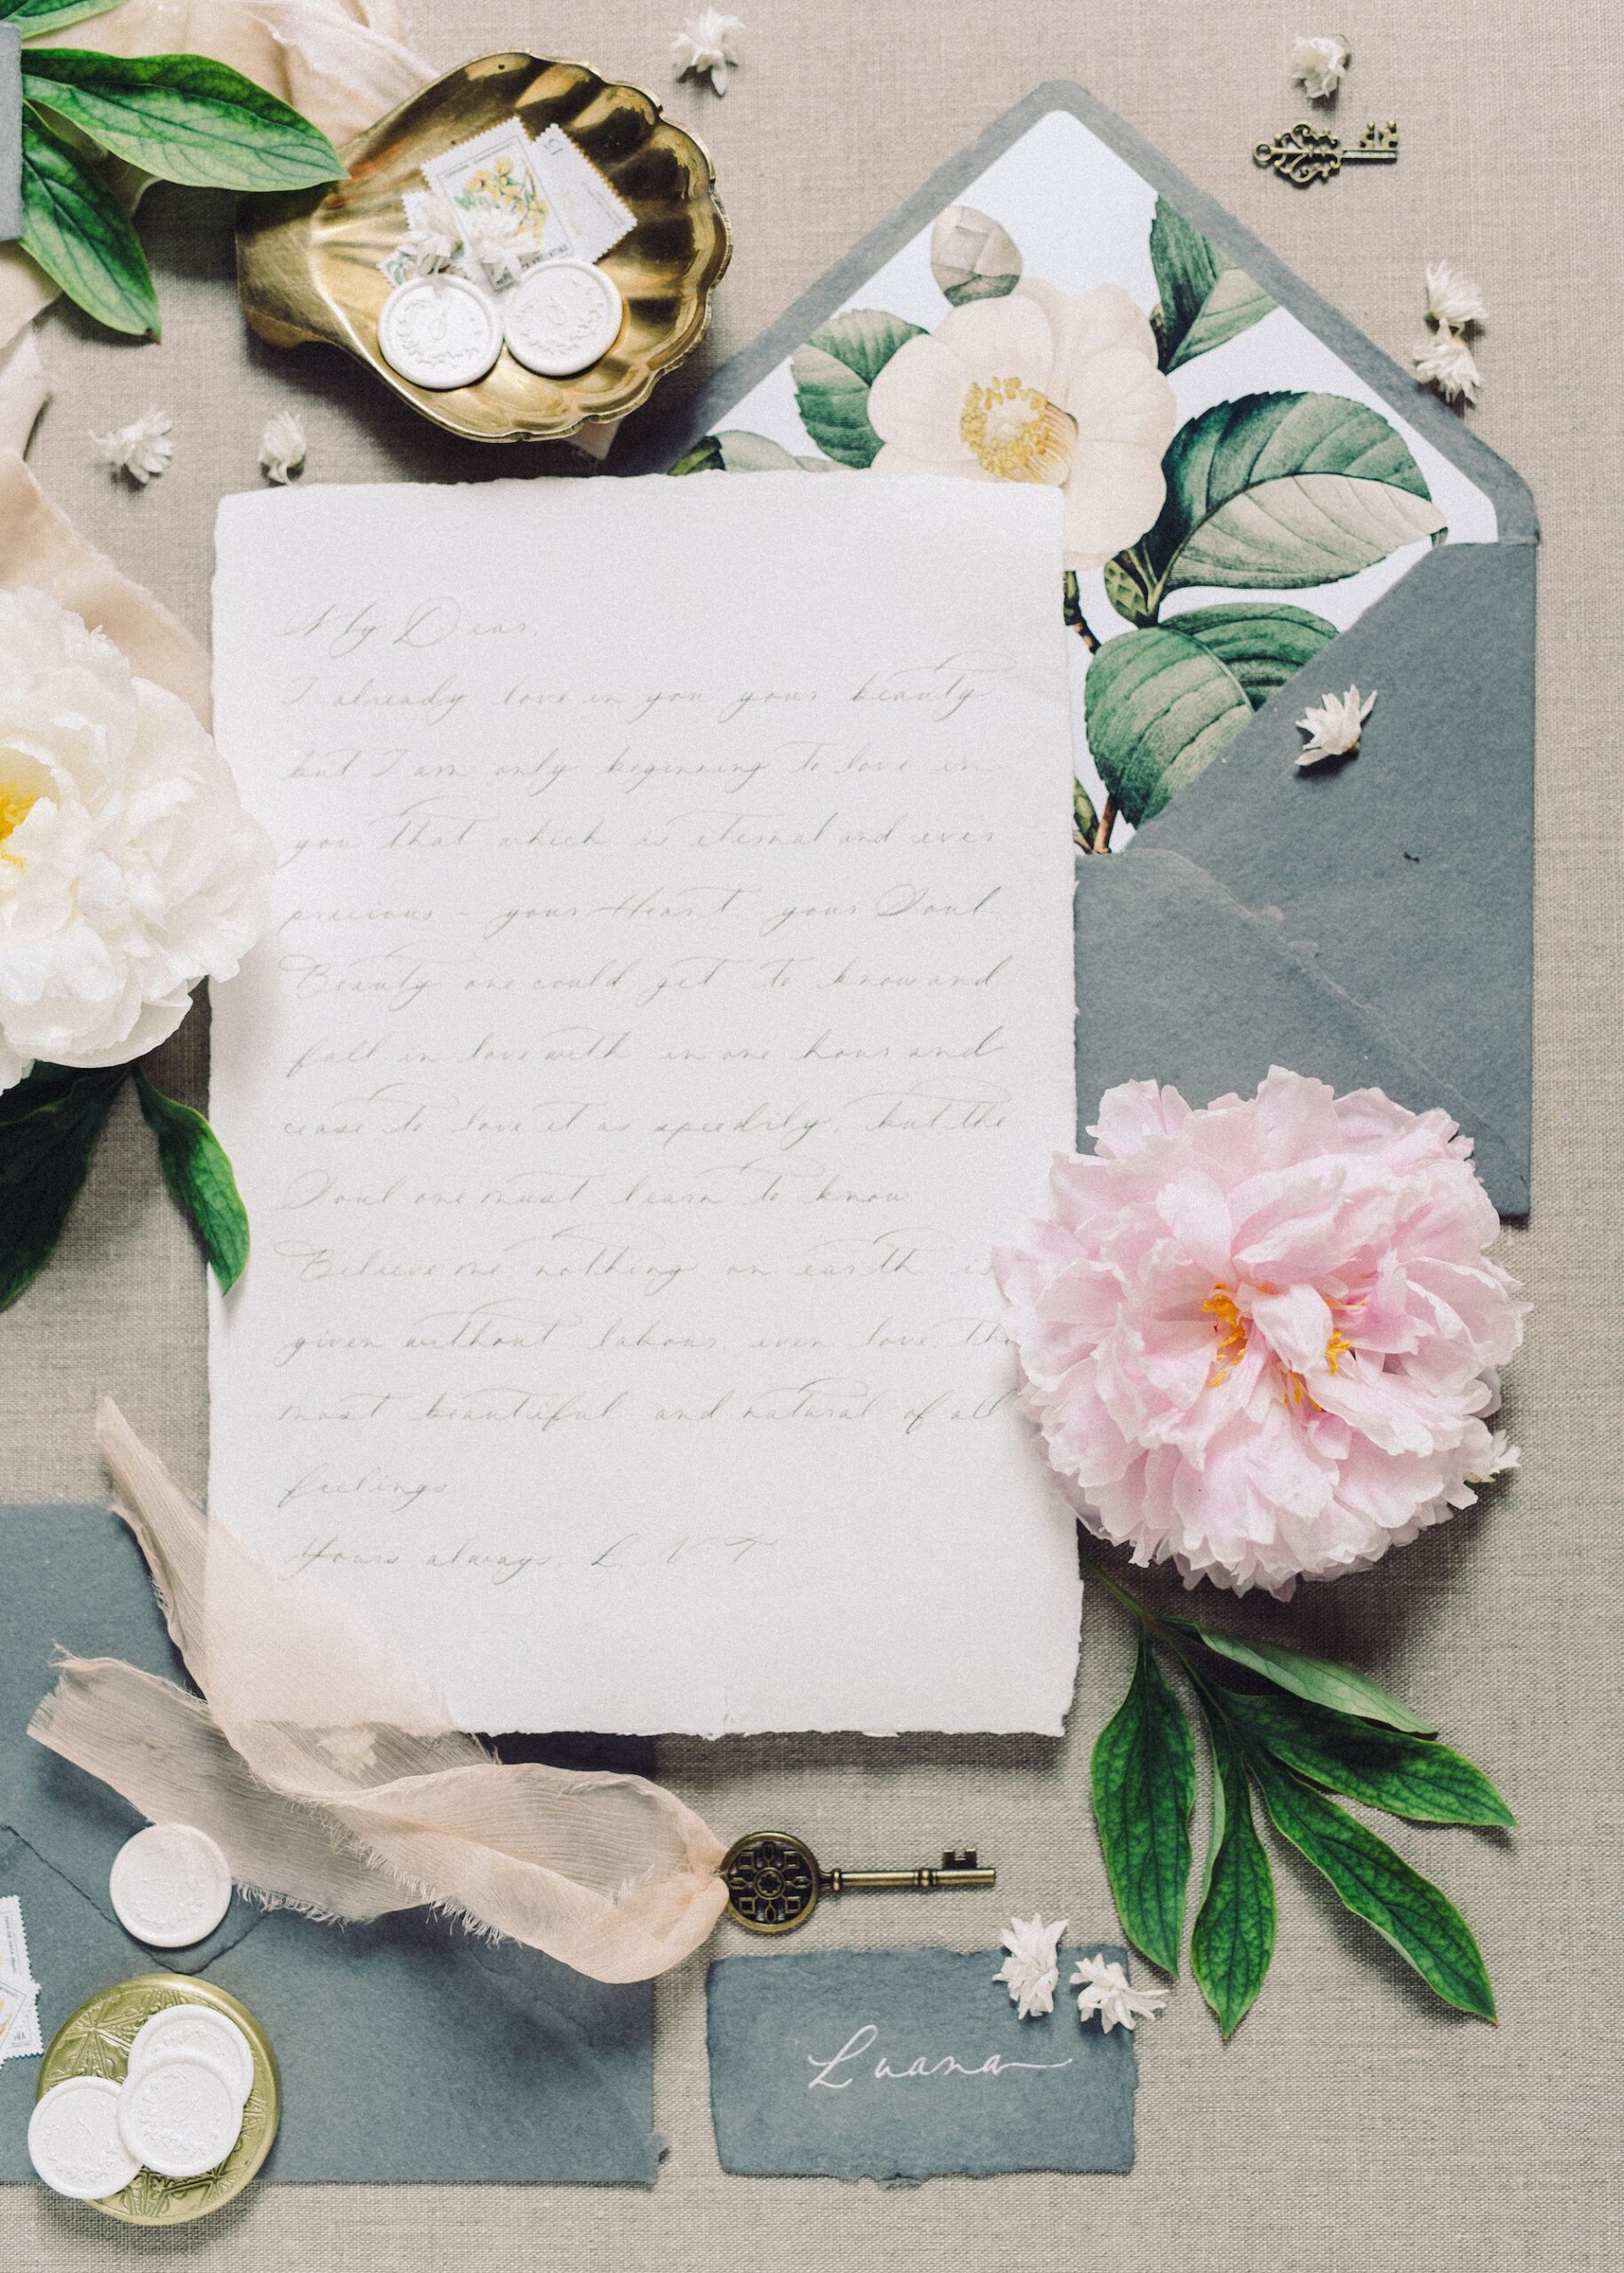 My Dear,
I already love in you your beauty,
but I am only beginning to love in
you that which is eternal and ever
precious - your Heart, your Soul.
Beauty one could get to know and
fall in love with in one hour and
cease to love it as speedily, but the
Soul one must learn to know
Believe me, nothing on earth is
given without labour, even love, the
most beautiful and natural of all
feelings
Yours always, L. N. T
Luana